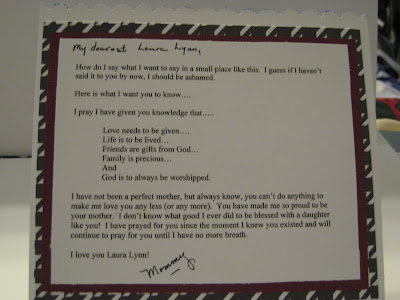 My dearest Laura Lynn,
How do I say what I want to say in a small place like this. I guess if I haven't
said it to you by now, I should be ashamed.
Here is what I want you to know....
I pray I have given you knowledge that.....
Love needs to be given....
Life is to be lived...
Friends are gifts from God...
Family is precious...
And
God is to always be worshipped.
I have not been a perfect mother, but always know, you can't do anything to
make me love you any less (or any more). You have made me so proud to be
your mother. I don't know what good I ever did to be blessed with a daughter
like you! I have prayed for you since the moment I knew you existed and will
continue to pray for you until I have no more breath.
I love you Laura Lynn!
Mommy